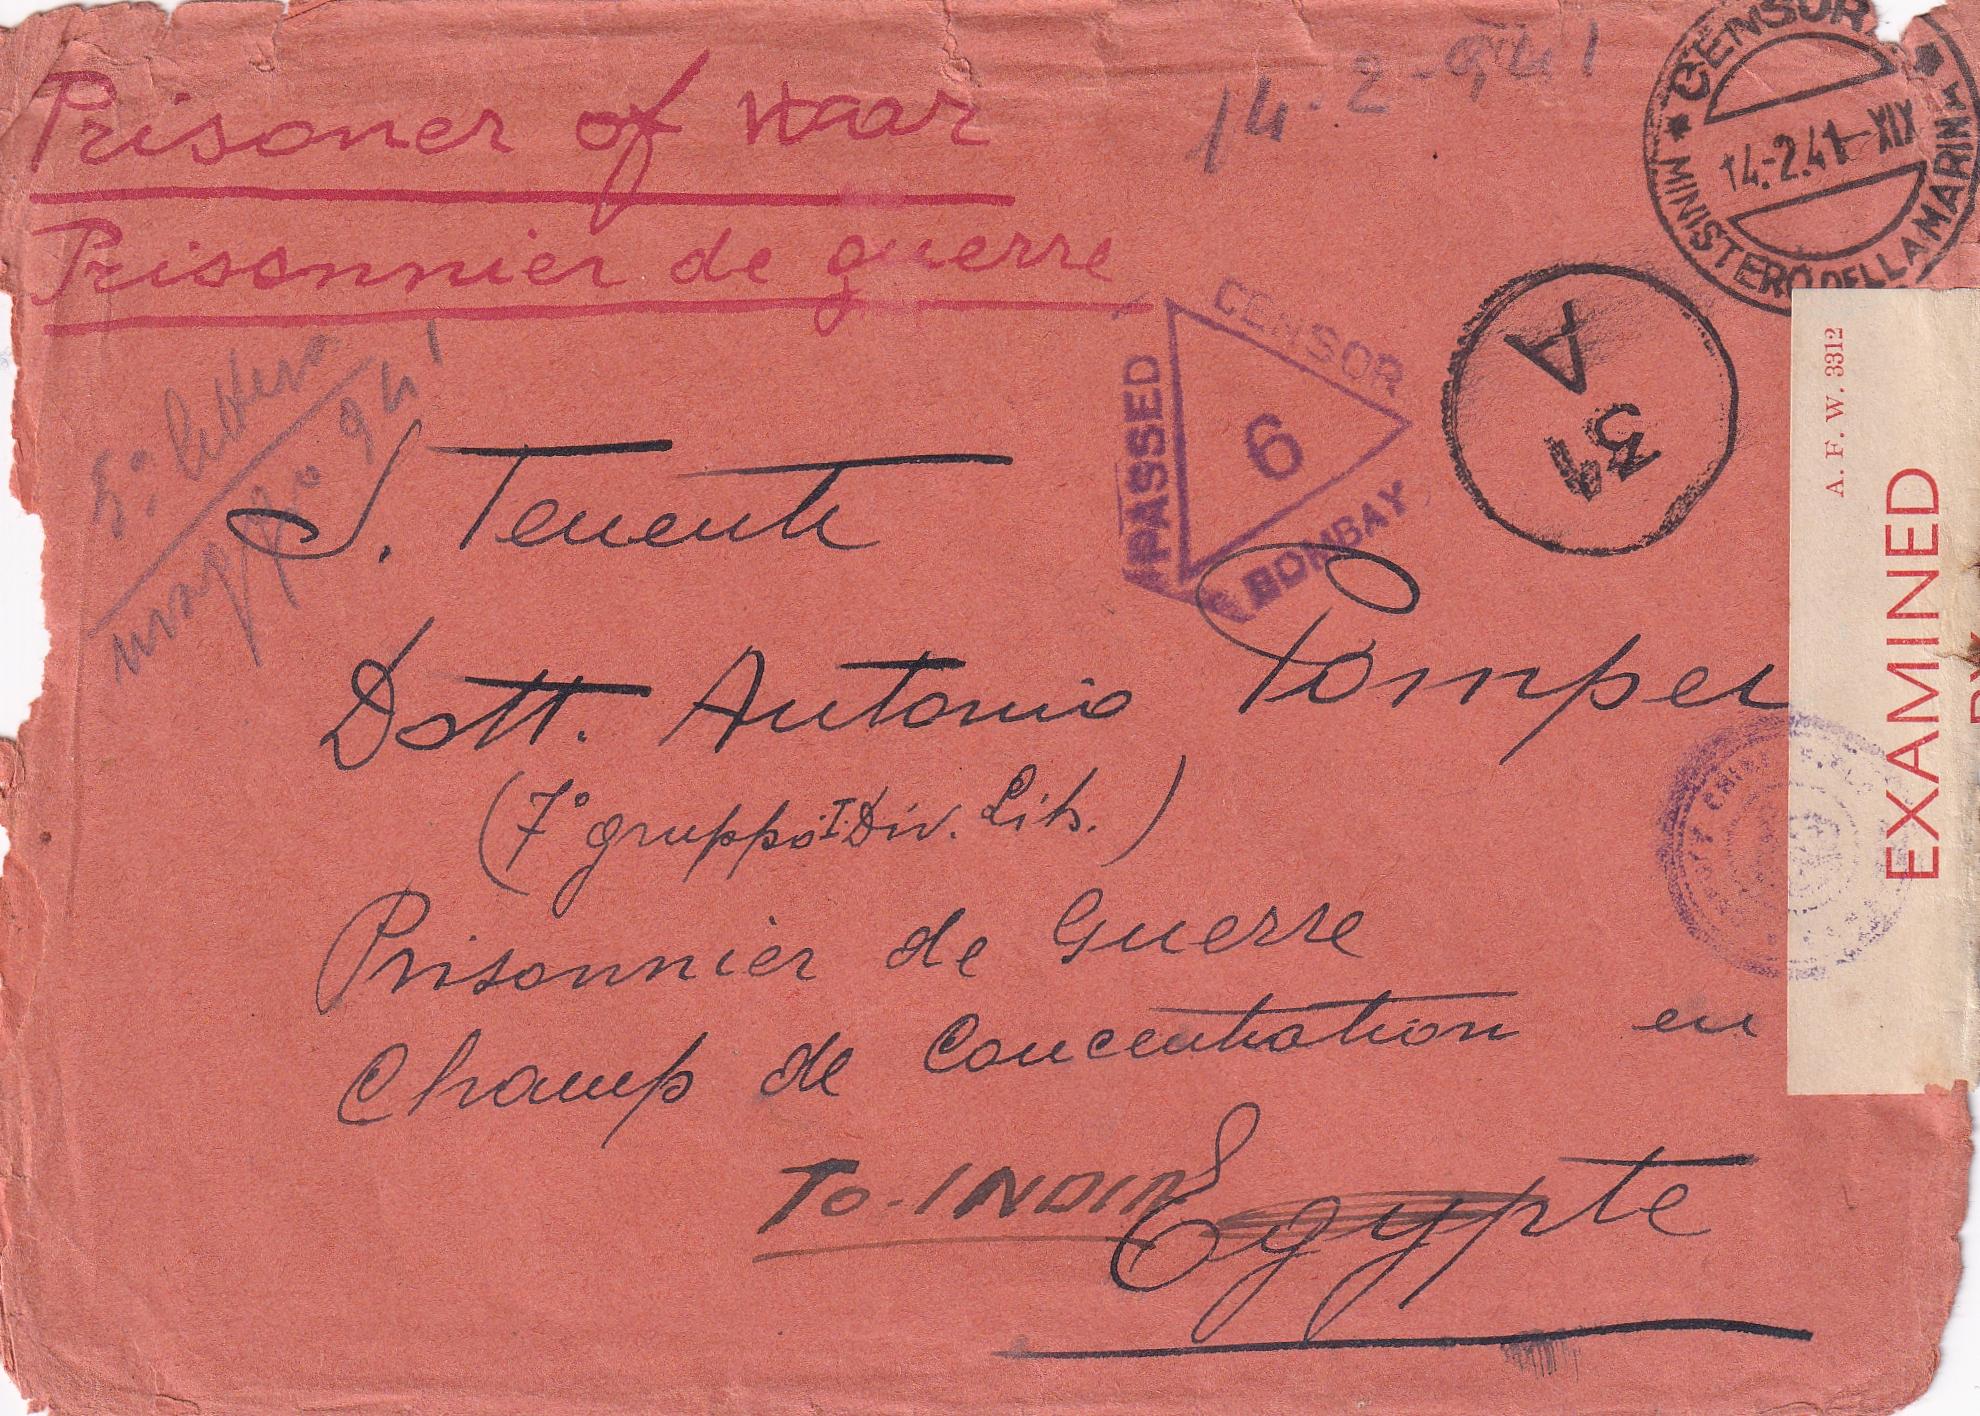 Prisoner of Waar
Prisonnier de guerre
14-2-941
CENSURA
14.-2.41-XIX
MINISTERO DELLA MARINA
5° lettera
941
PASSED
CENSOR
6
BOMBAY
31
A
A. F. W. 3312
EXAMINED
BY
S. Tenente
Dott. Antonio Pompei
(7° gruppo I. Div. Lib.)
Prisonnier de Guerre
Champ de Concentration en
To-INDIA
Egypte